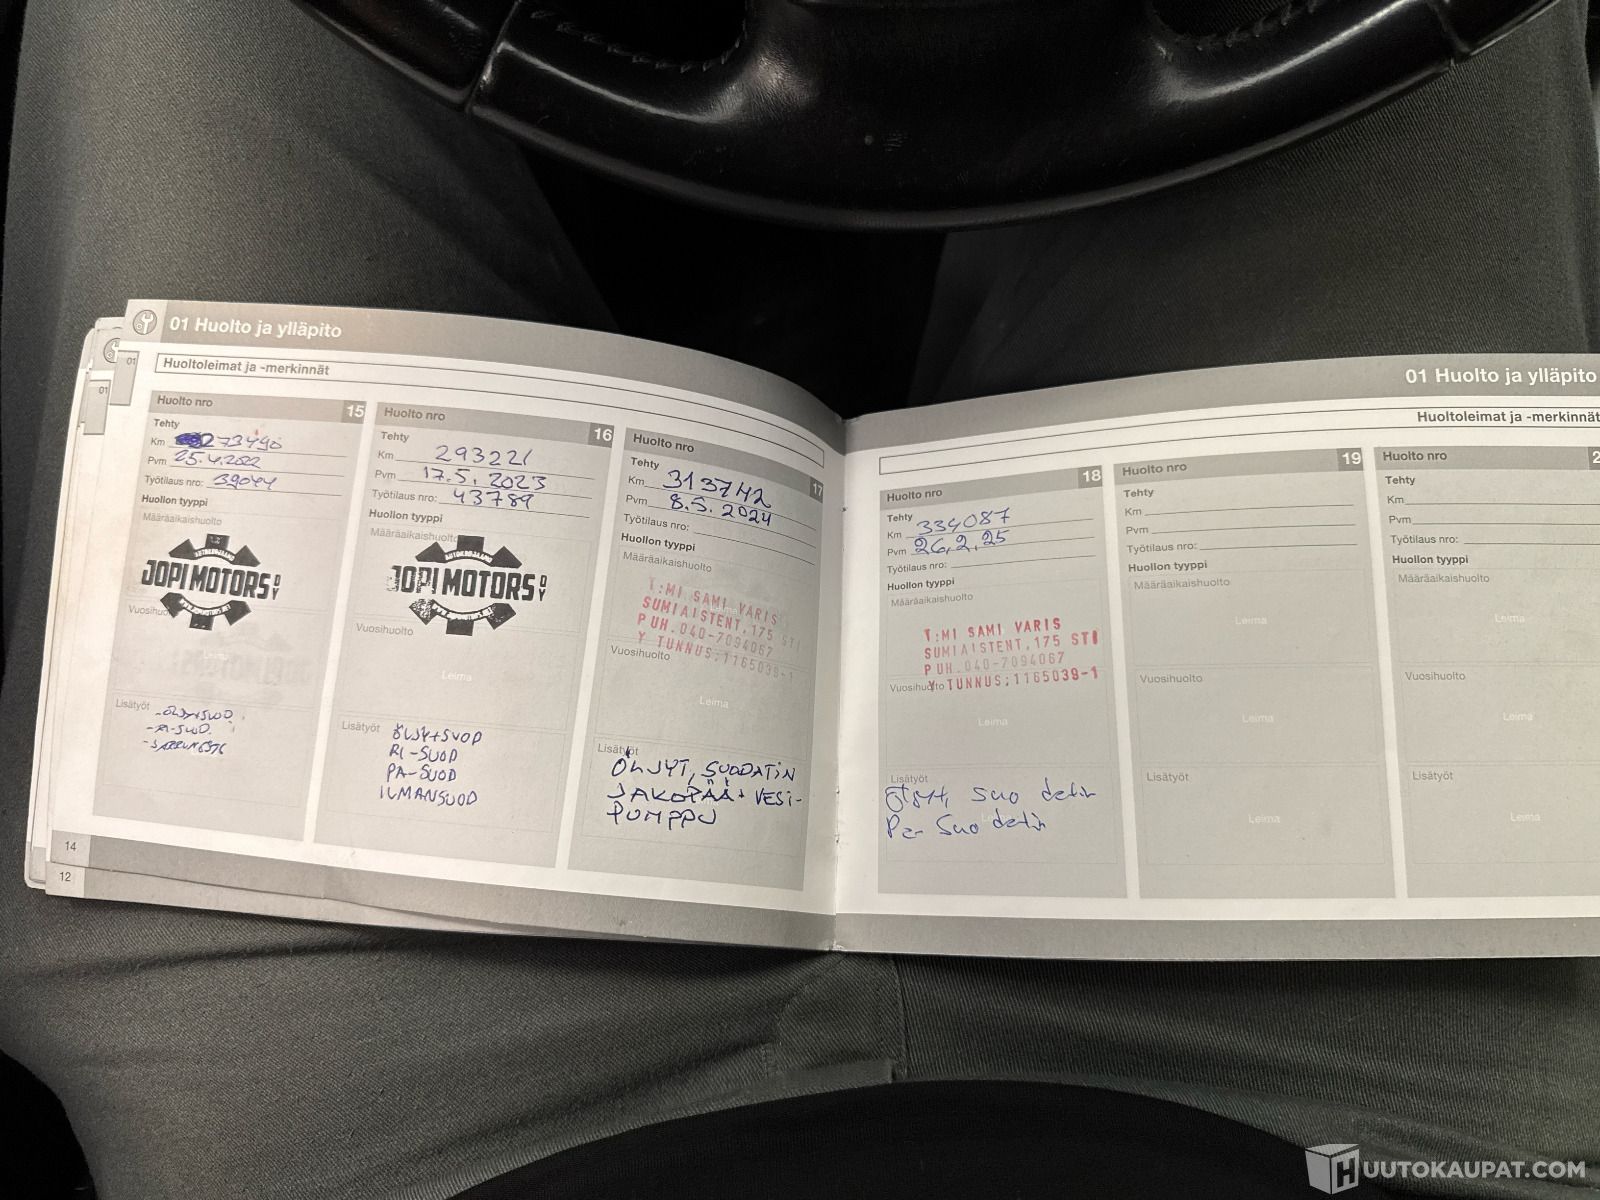 01 Huolto ja ylläpito
01
01
Huoltoleimat ja -merkinnät
Huolto nro 15
Tehty
Km 273490
Pvm 25.4.2022
Työtilaus nro: 39044
Huollon tyyppi
Määräaikaishuolto
JOPI MOTORS OY
Vuosihuolto
Leima
Lisätyöt
-ÖLJY+SUOD.
Huolto nro 16
Tehty
Km 293221
Pvm 17.5.2023
Työtilaus nro: 43789
Huollon tyyppi
Määräaikaishuolto
AUTOKORJAAMO
JOPI MOTORS OY
Vuosihuolto
Leima
Lisätyöt
ÖLJY+SUOD
RI-SUOD
PA-SUOD
ILMANSUOD
Huolto nro 17
Tehty
Km 313742
Pvm 8.5.2024
Työtilaus nro:
Huollon tyyppi
Määräaikaishuolto
Leima
T:MI SAMI VARIS
SUMIAISTENT.175 STI
PUH.040-7094067
Y TUNNUS:1165039-1
Vuosihuolto
Leima
Lisätyöt
ÖLJYT, SUODATIN
JAKOPÄÄ+ VESI-
PUMPPU
14
12
01 Huolto ja ylläpito
Huoltoleimat ja -merkinnät
Huolto nro 18
Tehty
Km 334087
Pvm 26.2.25
Työtilaus nro:
Huollon tyyppi
Määräaikaishuolto
T:MI SAMI VARIS
SUMIAISTENT.175 STI
PUH.040-7094067
Y TUNNUS:1165039-1
Vuosihuolto
Leima
Lisätyöt
Öljyt, suodatin
Pa-suodatin
Huolto nro 19
Tehty
Km
Pvm
Työtilaus nro:
Huollon tyyppi
Määräaikaishuolto
Leima
Vuosihuolto
Leima
Lisätyöt
Leima
Huolto nro 2
Tehty
Km
Pvm
Työtilaus nro:
Huollon tyyppi
Määräaikaishuolto
Leima
Vuosihuolto
Leima
Lisätyöt
Leima
HUUTOKAUPAT.COM